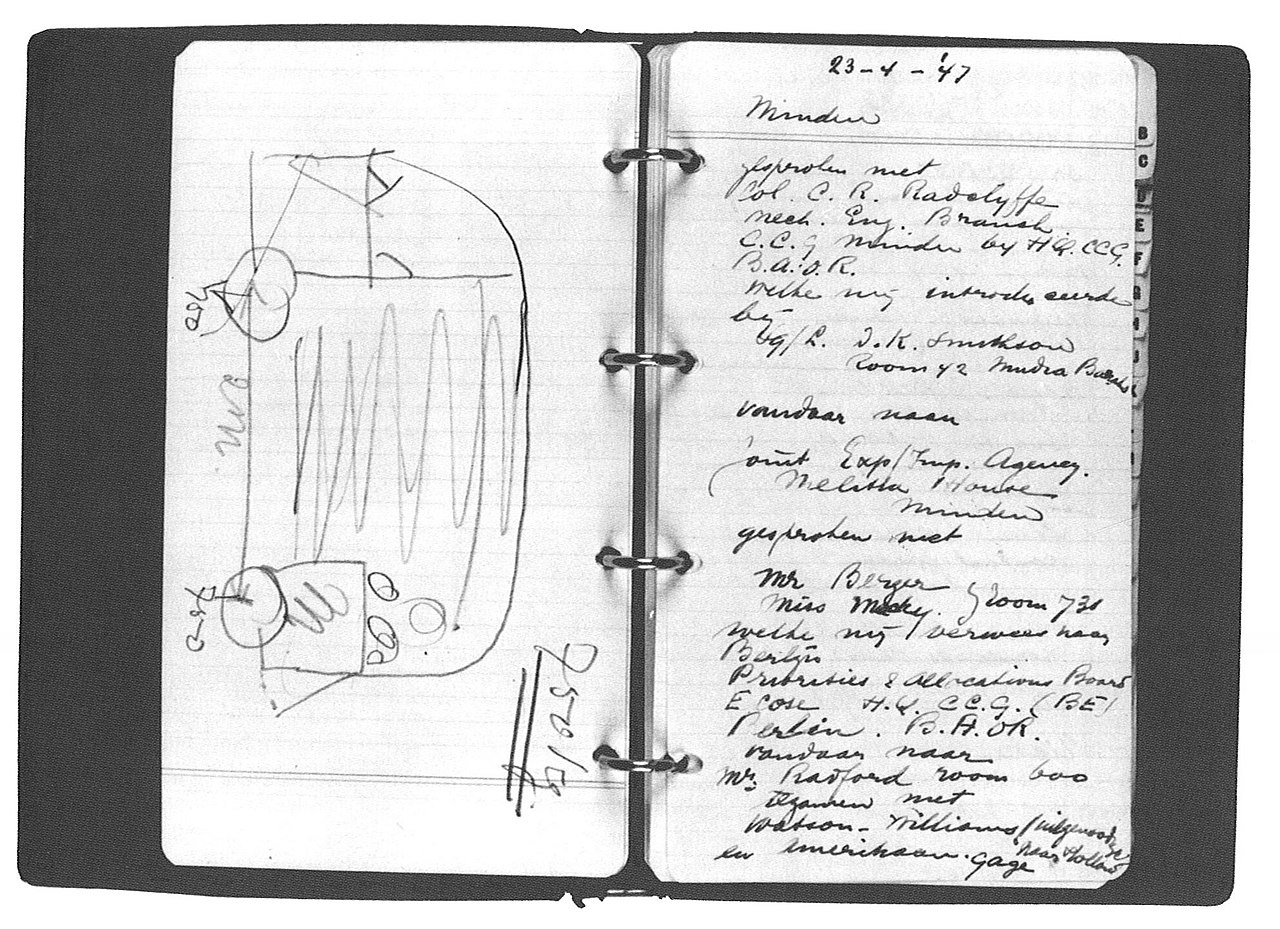 750
2 m.
750
750 kg
23-4-'47
Minden
gesproken met
Col. C. R. Radclyffe
Mech. Eng. Branch.
C.C.G Minden by HQ. CCG.
B.A.O.R.
welke mij introduceerde
bij
Sq/L. D.K. Smithson
Room 42 Mudra
vandaar naar
Joint Exp/Imp. Agency.
Melitta House
Minden
gesproken met
Mr Berger
Miss } room 730
welke mij verwees naar
Berlijn
Priorities & Allocations Board
H.Q. C.C.G. (BE)
Berlin. B.A.O.R.
vandaar naar
Mr. Radford room 600
tezamen met
Watson-Williams (
naar Holland
en Amerikaan. Gage
B
C
D
E
F
G
H
I
J